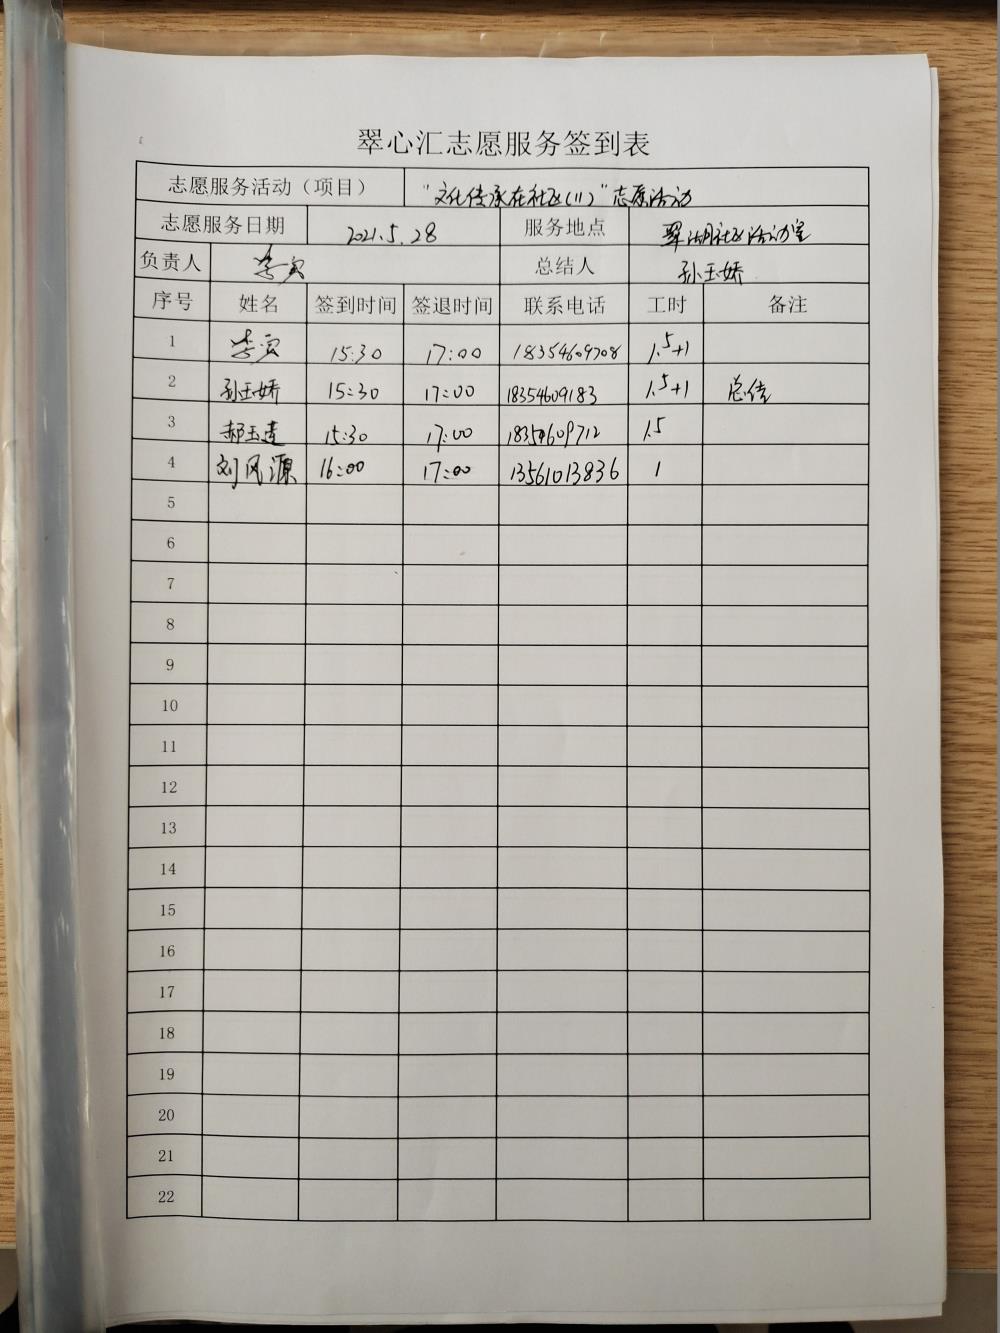 翠心汇志愿服务签到表
志愿服务活动（项目） "文化传承在社区（11）"志愿活动
志愿服务日期 2021.5.28 服务地点 翠湖社区活动室
负责人 李宾 总结人 孙玉娇
序号 姓名 签到时间 签退时间 联系电话 工时 备注
1 李宾 15:30 17:00 18354609708 1.5+1
2 孙玉娇 15:30 17:00 18354609183 1.5+1 总结
3 郝玉莲 15:30 17:00 18354609712 1.5
4 刘风源 16:00 17:00 13561013836 1
5
6
7
8
9
10
11
12
13
14
15
16
17
18
19
20
21
22